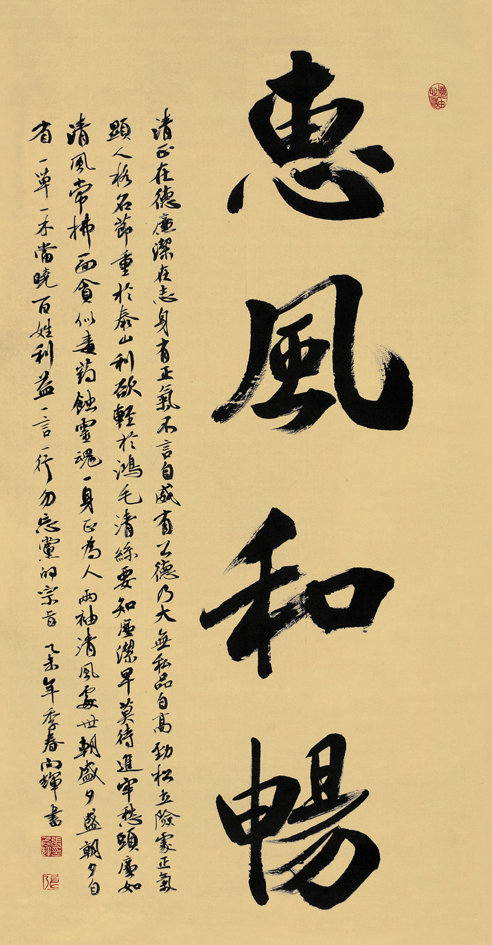 惠風和暢
清正在德廉潔在志身有正氣不言自威有公德乃大無私品自高勁松立險處正氣
顯人格名節重於泰山利欲輕於鴻毛清絲要知廉潔早莫待進牢愁頭廉如
清風常拂面貪似毒药蝕靈魂一身正為人兩袖清風處世朝盛夕盛朝夕自
省一草一木當曉百姓利益一言一行勿忘黨的宗旨 乙未年季春向輝書